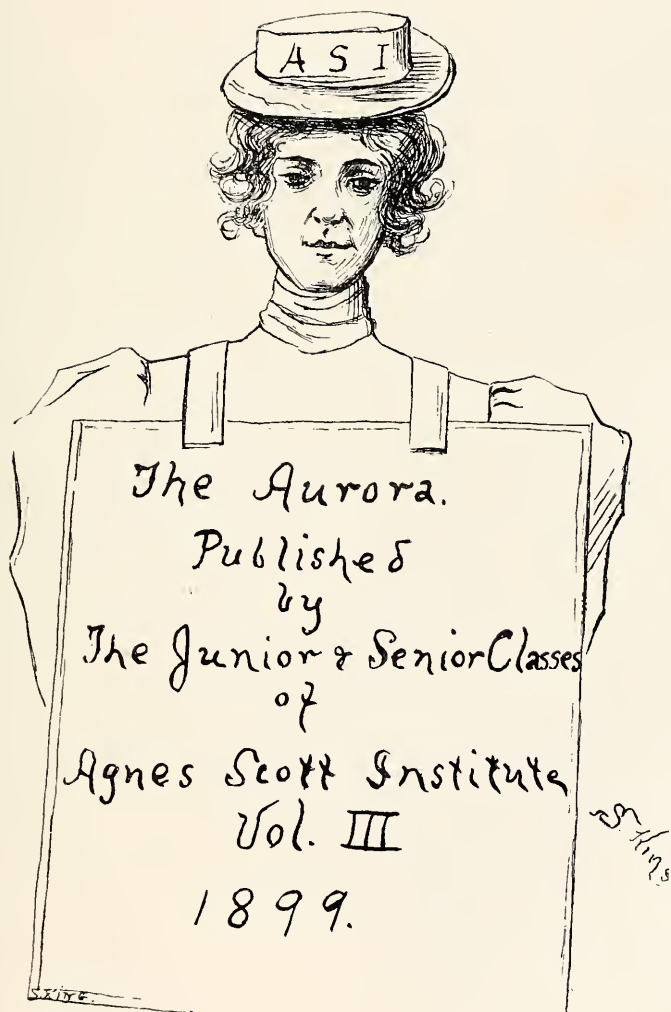 A S I
The Aurora.
Published
by
The Junior & Senior Classes
of
Agnes Scott Institute
Vol. III
1899.
S. King
S. KING.